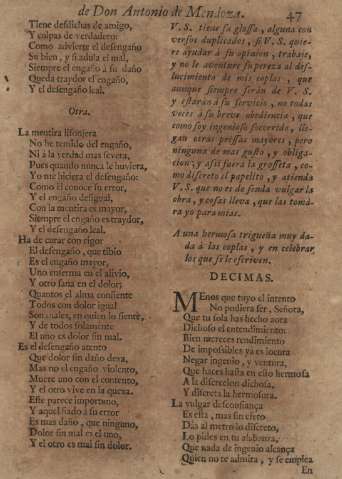 de Don Antonio de Mendoza. 47
Tiene desdichas de amigo,
Y culpas de verdadero:
Como advierte el desengaño
Su bien, y si adula el mal,
Siempre el engaño à su daño
Queda traydor el engaño,
Y el desengaño leal.
Otra.
La mentira lisonjera
No he temido del engaño,
Ni à la verdad mas severa,
Pues quando nunca le huviera,
Yo me hiciera el desengaño:
Como èl conoce su error,
Y el engaño desigual,
Con la mentira es mayor,
Siempre el engaño es traydor,
Y el desengaño leal.
Ha de curar con rigor
El desengaño, que tibio
Es el engaño mayor,
Uno enferma en el alivio,
Y otro sana en el dolor:
Quantos el alma consiente
Todos con dolor igual
Son males, en quien lo siente,
Y de todos solamente
El uno es dolor sin mal.
Es el desengaño atento
Que dolor sin daño dexa,
Mas no el engaño violento,
Muere uno con el contento,
Y el otro vive en la quexa.
Este parece importuno,
Y aquel fiado à su error
Es mas daño, que ninguno,
Dolor sin mal es el uno,
Y el otro es mal sin dolor.
V. S. tiene su glossa, alguna con
versos duplicados, si V. S. quie-
re ayudar à su opinion, trabaje,
y no le aventure su pereza al des-
lucimiento de mis coplas, que
aunque siempre seràn de V. S.
y estaràn à su servicio, no todas
veces à su breve obediencia, que
como soy ingenioso socorrido, lle-
gan otras pressas mayores, pero
ninguna de mas gusto, y obliga-
cion; y assi fuera la grosseta, co-
mo discreto el papelito, y atienda
V. S. que no es de senda vulgar la
obra, y cosas lleva, que las tomà-
ra yo para mias.
A una hermosa trigueña muy da-
da à las coplas, y en celebrar
los que se le escriven.
DECIMAS.
MEnos que tuyo el intento
No pudiera ser, Señora,
Que tu sola has hecho aora
Dichoso el entendimiento:
Bien mereces rendimiento
De impossibles ya es locura
Negar ingenio, y ventura,
Que haces hasta en esso hermosa
A la discrecion dichosa,
Y discreta la hermosura.
La vulgar desconfiança
Es esta, mas sin efeto
Dàs al metro lo discreto,
Lo pides en tu alabança,
Que nada de ingenio alcança
Quien no te admira, y se emplea
En